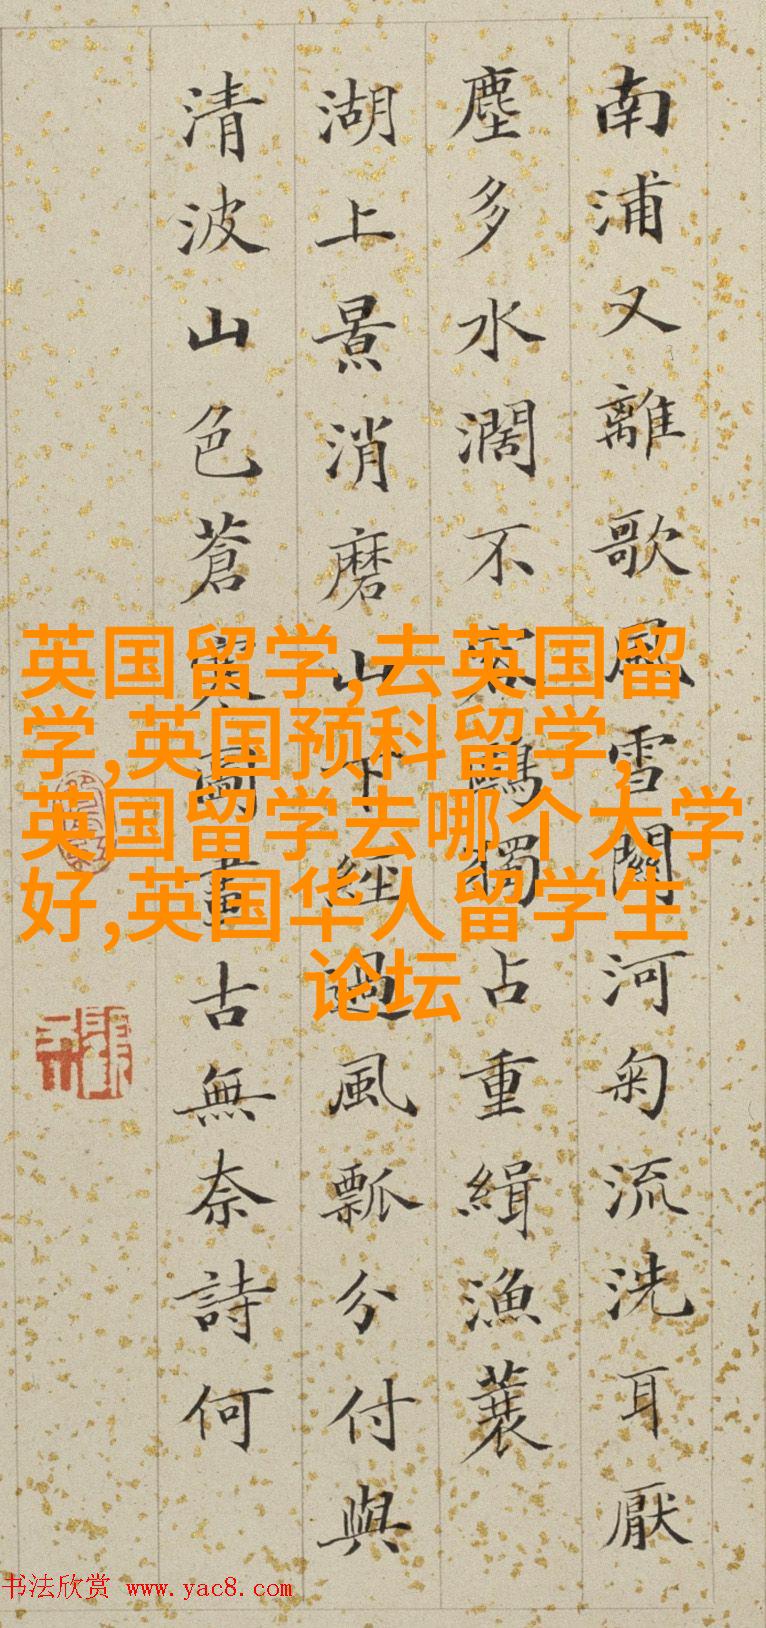 南浦又離歌風雪關河匊流洗耳厭
塵多水濶不容鷗獨占重緝漁蓑
湖上景消磨山下經過風瓢分付與
清波山色蒼寒圖畫古無奈詩何
英国留学,去英国留
学,英国预科留学,
英国留学去哪个大学
好,英国华人留学生
论坛
书法欣赏 www.yac8.com